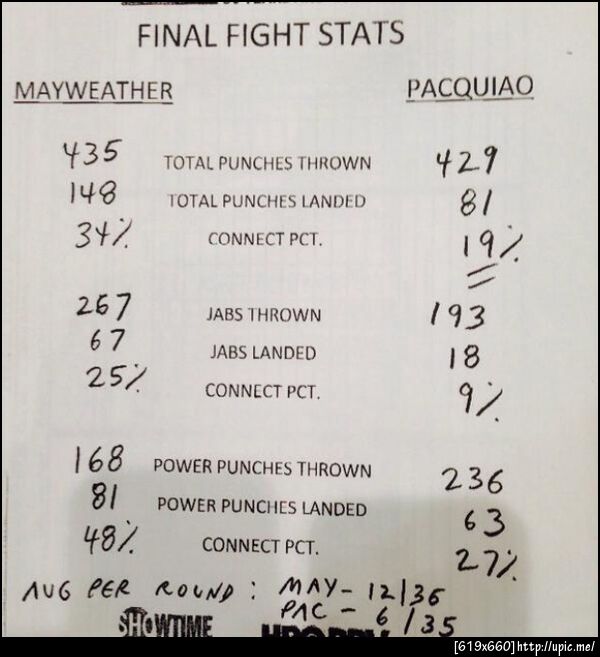 FINAL FIGHT STATS
MAYWEATHER PACQUIAO
435 TOTAL PUNCHES THROWN 429
148 TOTAL PUNCHES LANDED 81
34% CONNECT PCT. 19%
267 JABS THROWN 193
67 JABS LANDED 18
25% CONNECT PCT. 9%
168 POWER PUNCHES THROWN 236
81 POWER PUNCHES LANDED 63
48% CONNECT PCT. 27%
AVG PER ROUND : MAY - 12/36
PAC - 6/35
SHOWTIME HBO PPV
[619x660]http://upic.me/